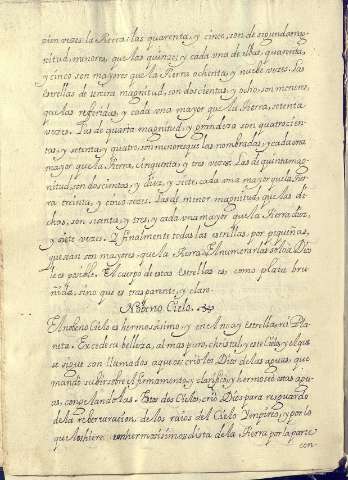 cien vezes la tierra: las quarenta, y cinco, son de segunda mag-
nitud, menores, que las quinze; y cada una de ellas, quarenta,
y cinco son mayores que la tierra ochenta, y nuebe vezes. Las
estrellas de tercera magnitud, son doscientas, y ocho, son menores,
que las referidas, y cada una mayor que la tierra, setenta
vezes. Las de quarta magnitud, y grandeza son quatrocien-
tas, y setenta, y quatro, son menores que las nombradas, y cada una
mayor que la tierra, cinquenta, y tres vezes. Las de quinta mag-
nitud, son doscientas, y diez, y siete, cada una mayor que la tie-
rra treinta, y cinco vezes. Las de menor magnitud, que las di-
chas, son sesenta, y tres, y cada una mayor que la tierra diez,
y siete vezes. Y finalmente todas las estrellas, por pequeñas,
que sean son mayores que la tierra, y el numerarlas solo a Dios
le es posible. El cuerpo de estas Estrellas es como plata bru-
ñida, sino que es trasparente, y claro.
Nobeno Cielo.
El nobeno Cielo es hermosissimo, y en el no ay estrella, ni Pla-
neta. Excede en belleza, al mas puro, christal, y este Cielo, y el que
se sigue son llamados aqueos: criolos Dios de las aguas, que
mando subir sobre el firmamento, y clarifico, y hermoseo estas agu-
as, congelandolas. Estos dos Cielos, crio Dios para resguardo
de la reberueracion, de los raios del Cielo Ympireo, y por lo
que es hiere hermosissimo dista de la tierra por la parte
con-